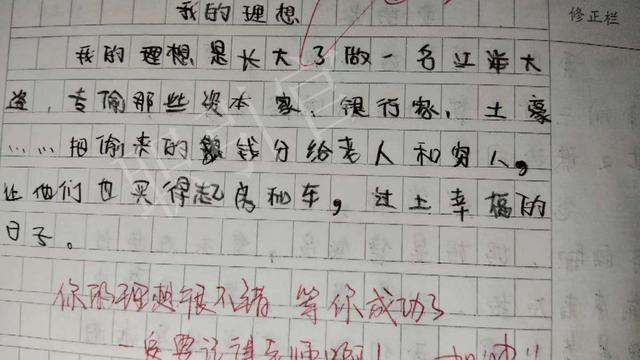 我的理想
修正栏
我的理想是长大了做一名江洋大
盗,专偷那些资本家、银行家、土豪
……把偷来的钱分给老人和穷人,
让他们也买得起房和车,过上幸福的
日子。
你的理想很不错 等你成功了
一定要记得老师